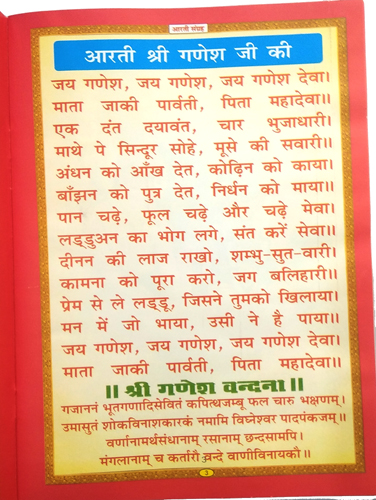 आरती संग्रह
आरती श्री गणेश जी की
जय गणेश, जय गणेश, जय गणेश देवा।
माता जाकी पार्वती, पिता महादेवा॥
एक दंत दयावंत, चार भुजाधारी।
माथे पे सिन्दूर सोहे, मूसे की सवारी॥
अंधन को आँख देत, कोढ़िन को काया।
बाँझन को पुत्र देत, निर्धन को माया॥
पान चढ़े, फूल चढ़े और चढ़े मेवा।
लड्डुअन का भोग लगे, संत करें सेवा॥
दीनन की लाज राखो, शम्भु-सुत-वारी।
कामना को पूरा करो, जग बलिहारी॥
प्रेम से ले लड्डू, जिसने तुमको खिलाया।
मन में जो भाया, उसी ने है पाया॥
जय गणेश, जय गणेश, जय गणेश देवा।
माता जाकी पार्वती, पिता महादेवा॥
॥ श्री गणेश वन्दना ॥
गजाननं भूतगणादिसेवितं कपित्थजम्बू फल चारु भक्षणम्।
उमासुतं शोकविनाशकारकं नमामि विघ्नेश्वर पादपंकजम्॥
वर्णानामर्थसंधानाम् रसानाम् छन्दसामपि।
मंगलानाम् च कर्तारौ वन्दे वाणीविनायकौ॥
3